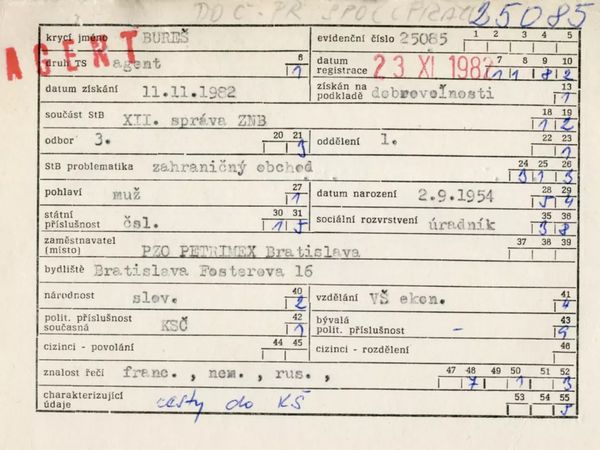 25085
AGENT
krycí jméno BUREŠ evidenční číslo 25085 1 2 3 4 5
druh TS agent 6 1 datum registrace 23 XI 1982 7 8 9 10 1 1 8 2
datum získání 11.11.1982 získán na podkladě dobrovoľnosti 13 1
součást StB XII. správa ZNB 18 19 1 2
odbor 3. 20 21 3 oddělení 1. 22 23 1
StB problematika zahraničný obchod 24 25 26 3 1 3
pohlaví muž 27 1 datum narození 2.9.1954 28 29 5 4
státní příslušnost čsl. 30 31 1 5 sociální rozvrstvení úradník 35 36 3 8
zaměstnavatel (místo) PZO PETRIMEX Bratislava 37 38 39
bydliště Bratislava Fosterova 16
národnost slov. 40 2 vzdělání VŠ ekon. 41 4
polit. příslušnost současná KSČ 42 1 bývalá polit. příslušnost - 43 9
cizinci - povolání 44 45 cizinci - rozdělení 46
znalost řečí franc., nem., rus., 47 48 49 50 51 52 7 1 3
charakterizující údaje cesty do KŠ 53 54 55 8